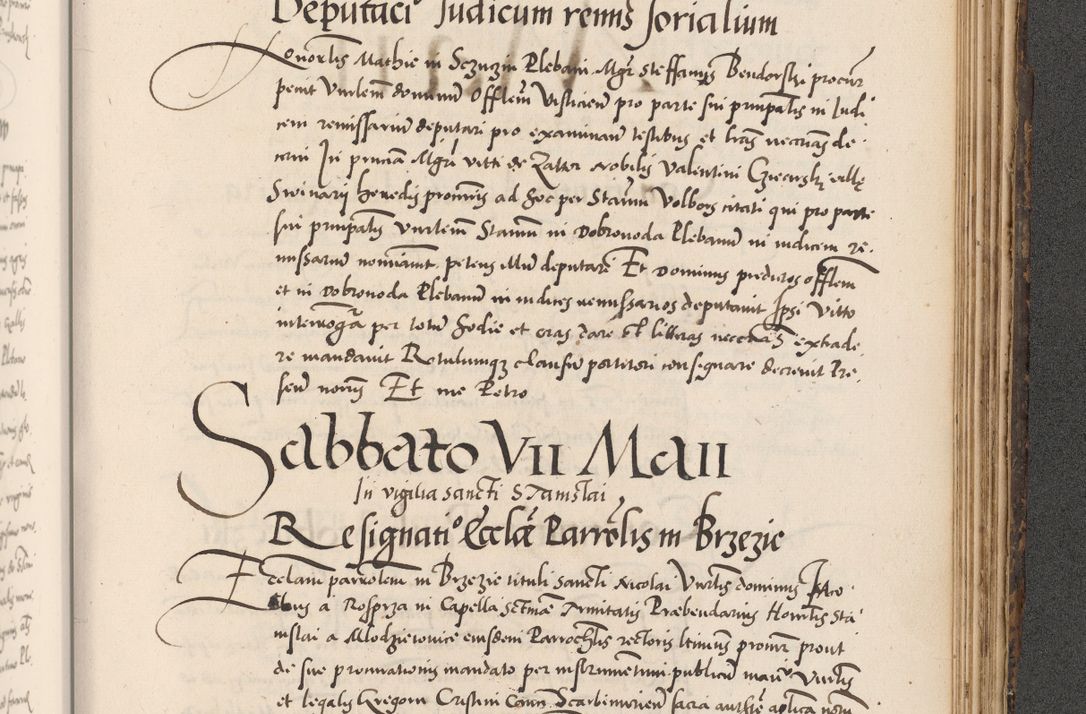 Deputacio Judicum remis sorialium
Honorlis Mathie in Sczuczin Plebani Mgr Steffanus Bendorski procur
petiit Vnrlem dominum Offlem Visliciem pro parte sui prinpalis in Judi
cem remissarium deputari pro examinan testibus et lras necrias de
cerni In princiam Mgri Vitti de Zattor Nobilis Valentini
Swinary heredis promis ad hoc per Stanum Volbors citati qui pro parte
sui prinpalis Vnrlem Stanum in Dobrovoda Plebanum in iudicem re
missarium nominavit petens illum deputare Et Dominus predictos offlem
et in Dobrovoda Plebanum in iudices remissarios deputavit Ipsi Vitto
interroga per totum hodie et cras dare et litteras necrias extrade
re mandavit Rotulumqz clausum portitori consignare decrevit Pre
sen noris Et me Petro
Sabbato VII Maii
In vigilia Sancti Stanislai
Resignatio Eccle Parrolis in Brzezie
Ecclam parrolem in Brzezie tituli Sancti Nicolai Vnrlis dominus Jaco
bus a Rosprza in Capella Sctme Trinitatis Prebendarius Honrlis Sta
nislai a Mlodzieiowice eiusdem Parrochlis rectoris ltimus procur prout
de sue procurationis mandato per instrumentum publicum manu Vnrlis
et legalis Gregorii Cristini Canon Scarbimirien sacra autte aplica notri